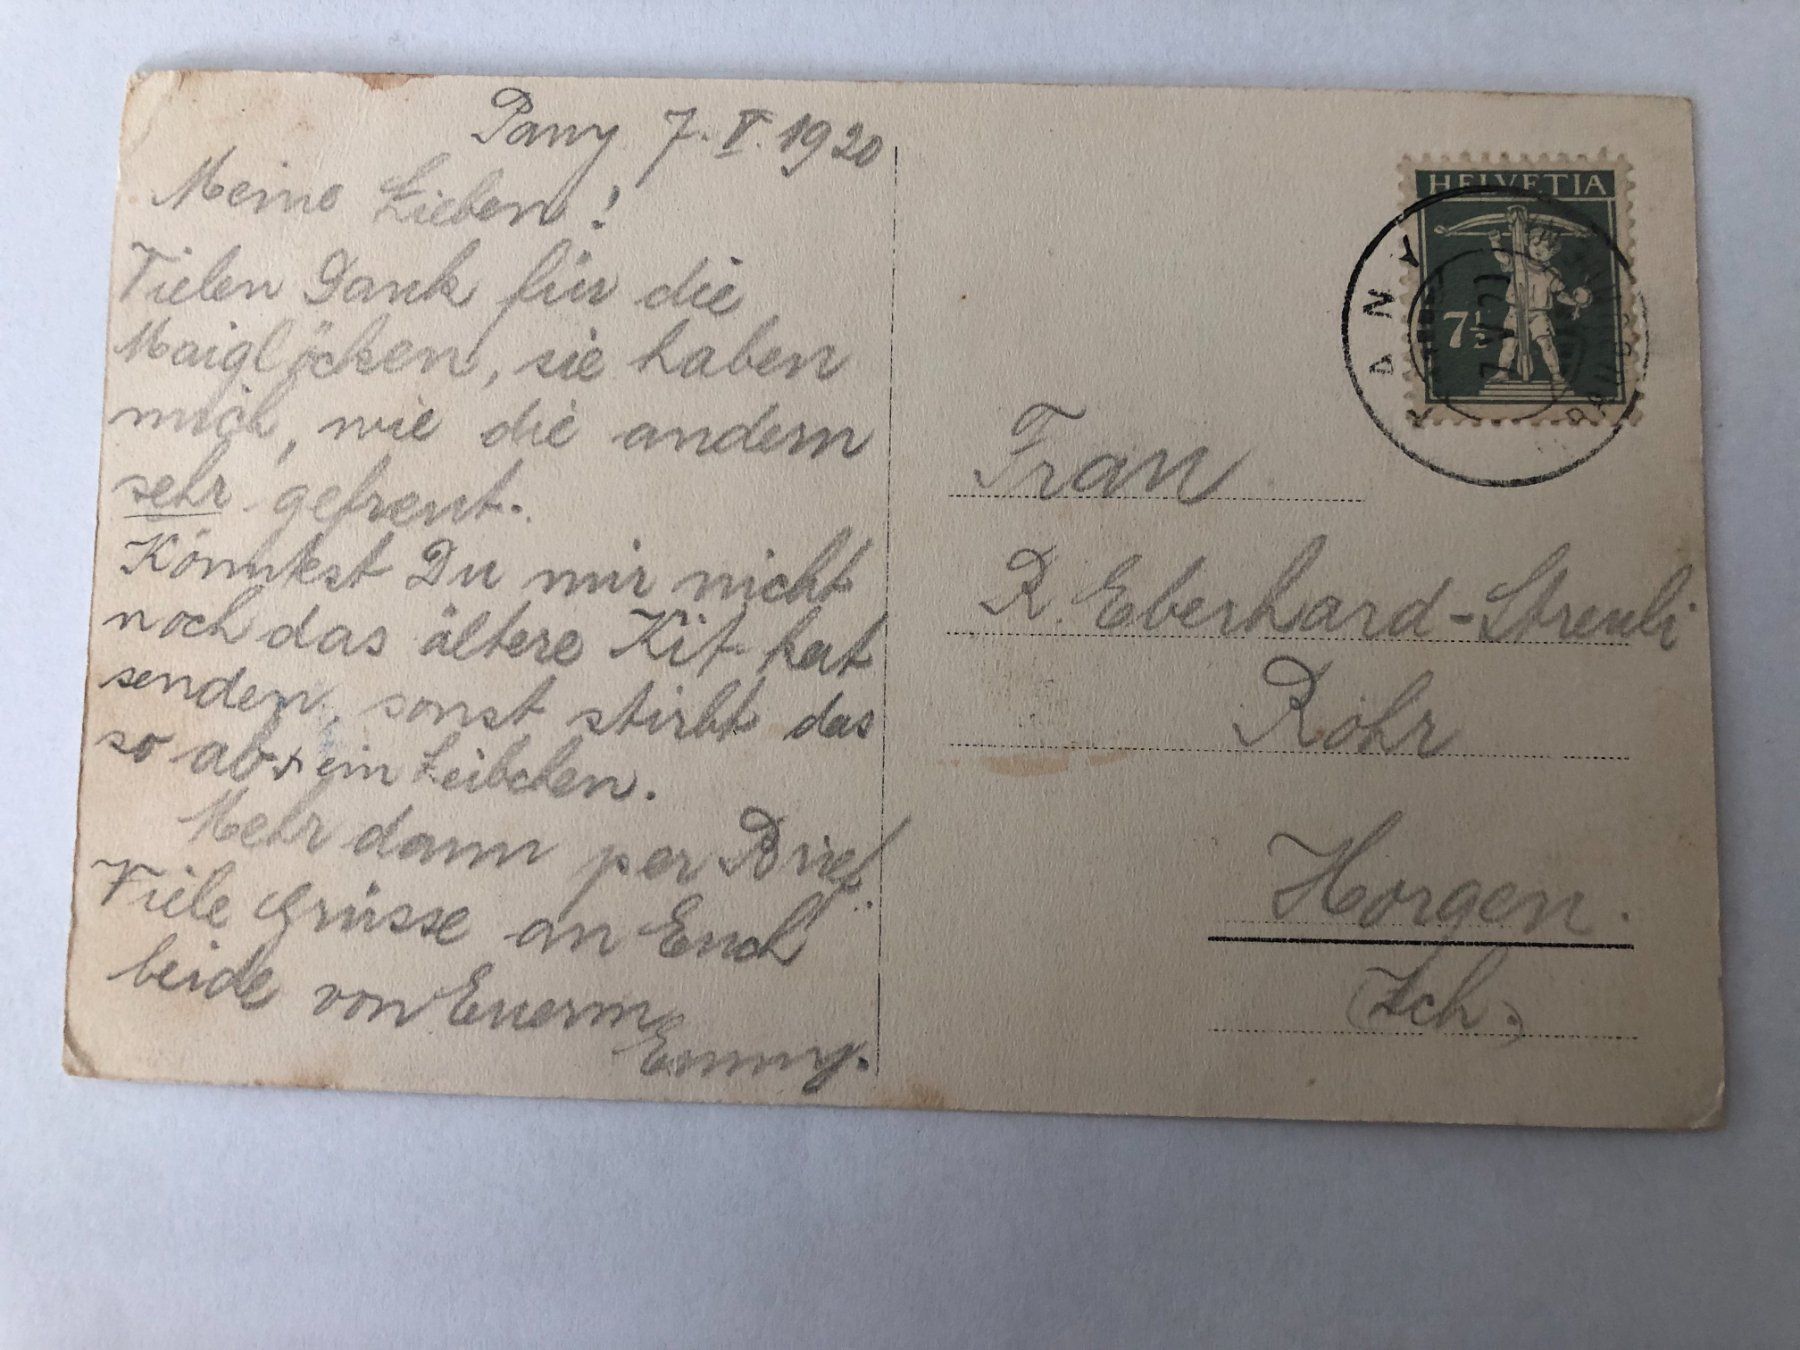 Pany 7. V. 1920
Meine Lieben!
Vielen Dank für die
Maiglöcken, sie haben
mich, wie die andern
sehr gefreut.
Könntest Du mir nicht
noch das ältere
senden, sonst stirbt das
so ab. ein Leibchen.
Mehr dann per Brief.
Viele Grüsse an Euch
beide von Euerm
Emmy.
HELVETIA
7½
PANY
Frau
R. Eberhard-Streuli
Röhr
Horgen.
(Zch.)